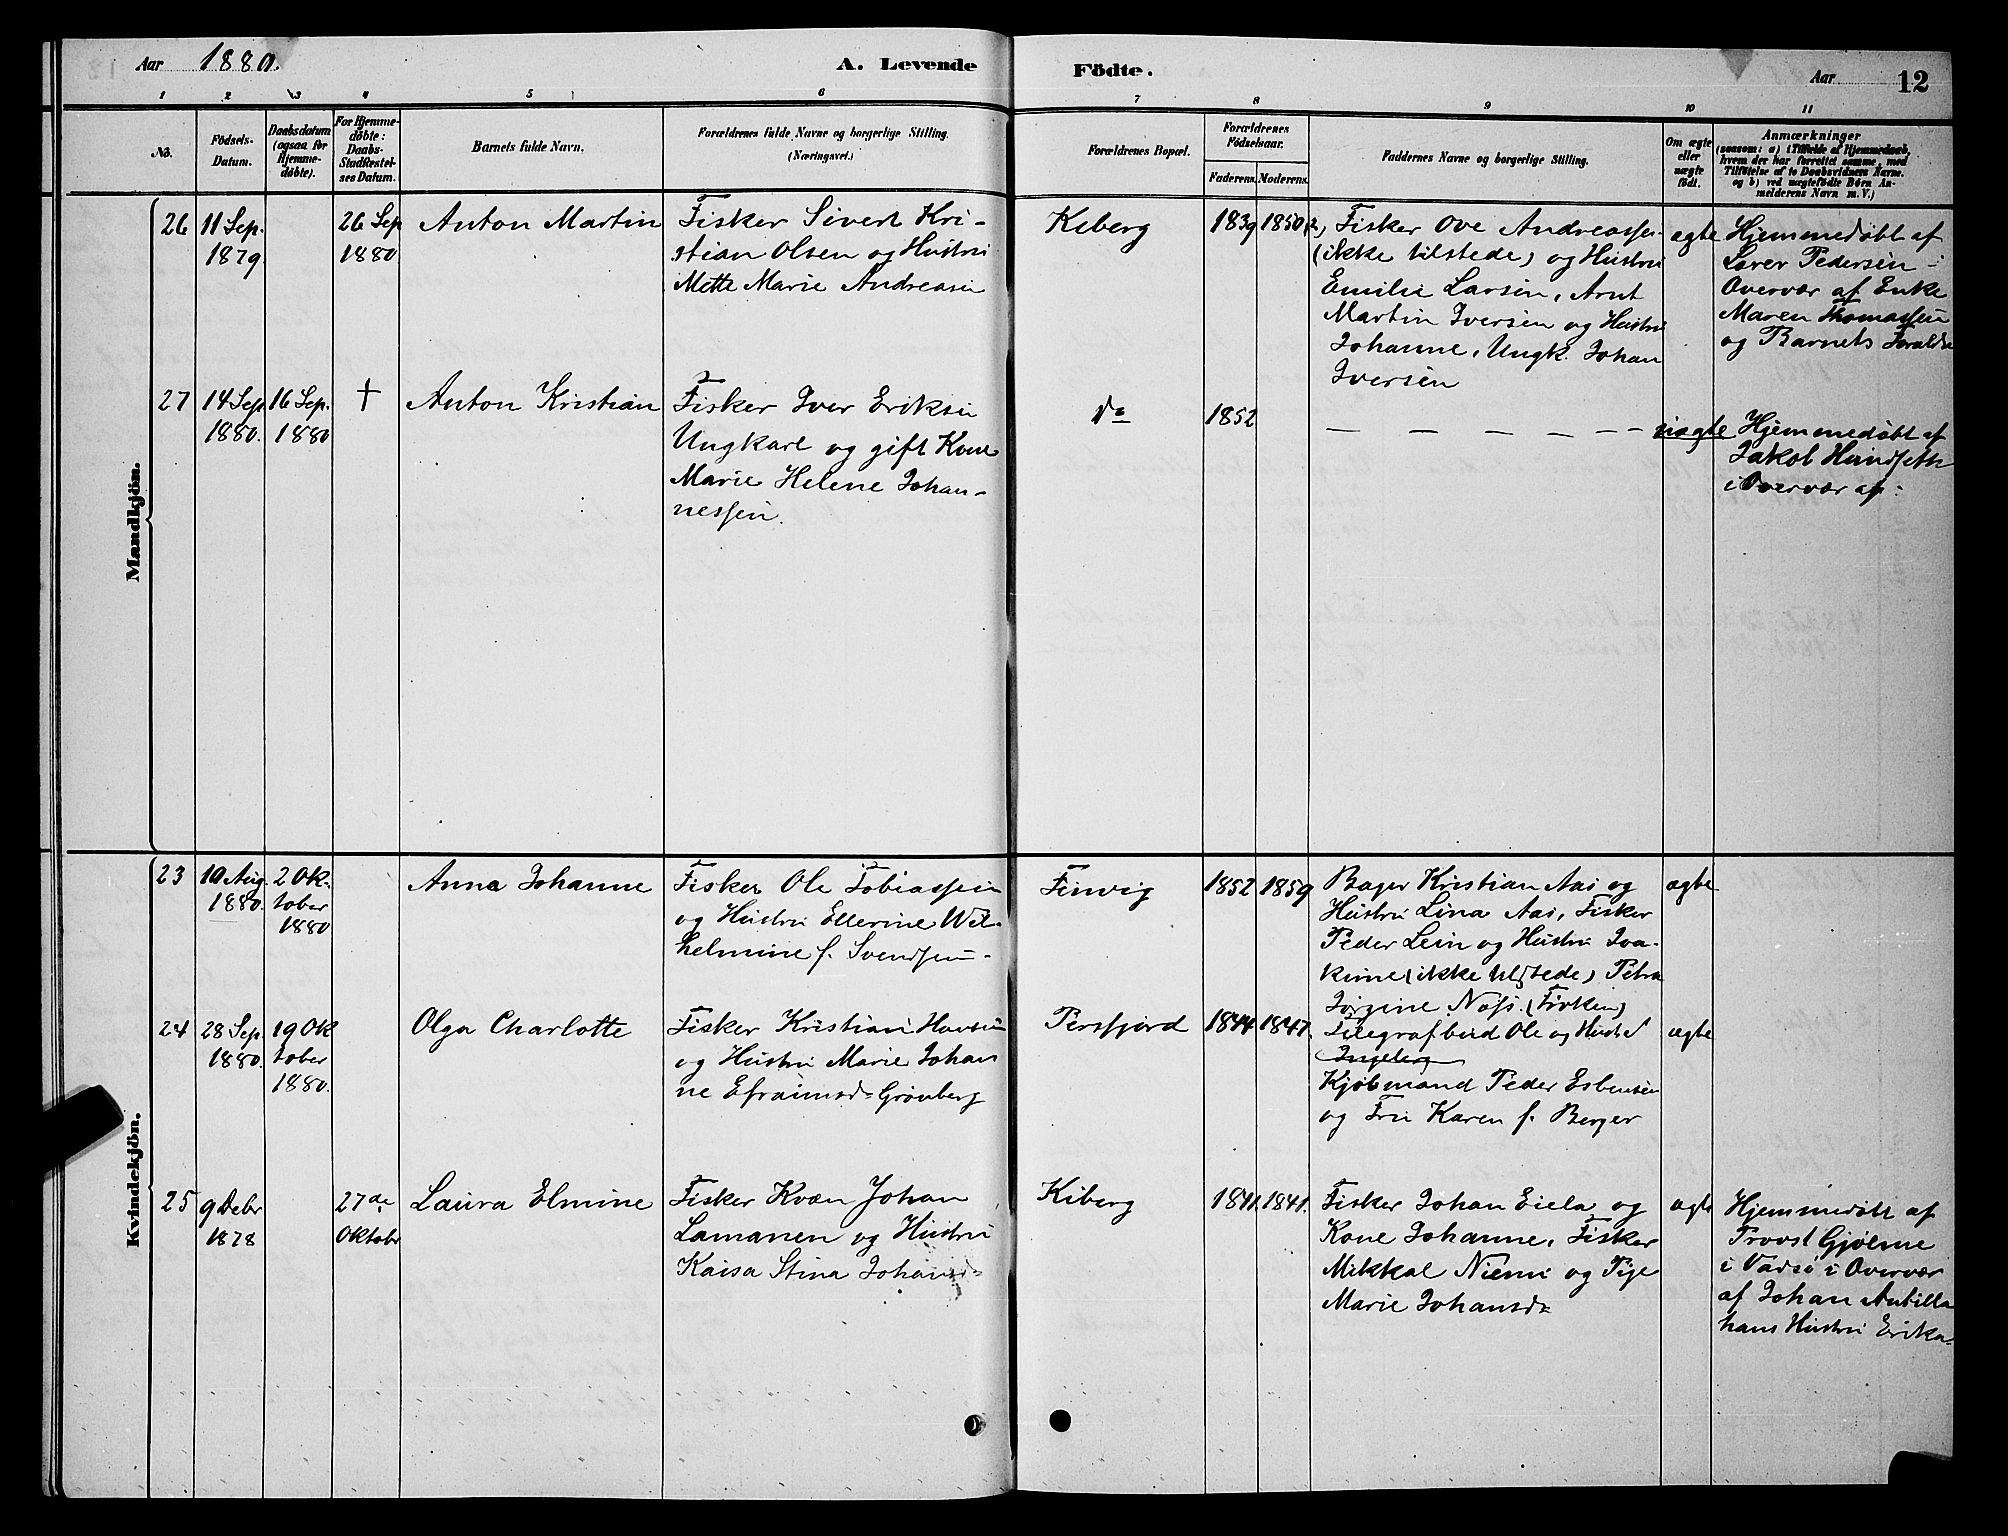 Aar 1880. A. Levende Födte. Aar 12
1 2 3 4 5 6 7 8 9 10 11
No.
Födsels-
Datum.
Daabsdatum
(ogsaa for
Hjemme-
døbte).
For Hjemme-
døbte:
Daabs-
Stadfæstel-
ses Datum.
Barnets fulde Navn.
Forældrenes fulde Navne og borgerlige Stilling.
(Næringsvei.)
Forældrenes Bopæl.
Forældrenes
Födselsaar.
Faderens. Moderens.
Faddernes Navne og borgerlige Stilling.
Om ægte
eller
uægte
födt.
Anmærkninger
(saasom: a) i Tilfælde af Hjemmedaab,
hvem der har forrettet samme, med
Tilföielse af to Daabsvidners Navne.
og b) ved uægtefödte Börn An-
melderens Navn m. V.)
Mandkjön.
26
11 Sep.
1879.
26 Sep
1880
Anton Martin
Fisker Sivert Kri-
stian Olsen og Hustru
Mette Marie Andreasen
Kiberg
1839
1850
Fisker Ove Andreassen
(ikke tilstede) og Hustru
Emilie Larsen, Arnt
Martin Iversen og Hustru
Johanne, Ungk. Johan
Iversen
ægte
Hjemmedøbt af
Lærer Pedersen i
Overvær af Enke
Maren Thomassen
og Barnets Foreldre
27
14 Sep
1880.
16 Sep.
1880
†
Anton Kristian
Fisker Iver Eriksen
Ungkarl og gift Kone
Marie Helene Johan-
nessen.
Do
1852
— — — — — —
uægte
Hjemmedøbt af
Jakob
i Overvær af:
Kvindekjön.
23
10 Aug.
1880.
2 Ok-
tober
1880
Anna Johanne
Fisker Ole Tobiassen
og Hustru Ellerine Wil-
helmine f. Svendsen-
Finvig
1852
1859
Bager Kristian Aas og
Hustru Lina Aas, Fisker
Peder Lein og Hustru Joa-
kime (ikke tilstede) Petra
Jørgine (Frøken)
ægte
24
28 Sep
1880.
19 Ok
tober
1880.
Olga Charlotte
Fisker Kristian Hansen
og Hustru Marie Johan
ne Efraimsd= Grønberg
Persfjord
1844
1847.
Telegrafbud Ole og Hustr
Ingeborg
Kjøbmand Peder Esbensen
og Fru Karen f. Berger
ægte
25
9 Debr
1878
27de
Oktobr
Laura Elmine
Fisker Kvæn Johan
Lamanen og Hustru
Kaisa Stina Johansd=
Kiberg
1841.
1841.
Fisker Johan Eiela og
Kone Johanne, Fisker
Mikkal Niemi og Pige
Marie Johansd=
ægte
Hjemmedøbt af
Provst Gjølme
i Vadsø i Overvær
af Johan Antilla
hans Hustru Erika